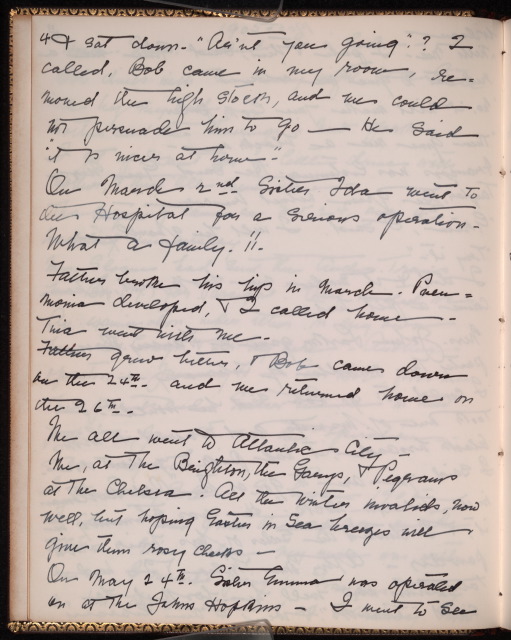 4 & sat down. "Ain't you going"? I
called. Bob came in my room, re-
moved the high stock, and we could
not persuade him to go — He said
"it is nicer at home"
On March 2nd Sister Ida went to
the Hospital for a serious operation.
What a family.!!
Father broke his hip in March. Pneu=
monia developed, & I called home.
Tina went with me.
Father grew better, & Bob came down
on the 24th. and we returned home on
the 26th.
We all went to Atlantic City —
We, at The Brighton, the &
at The Chelsea. All the winter invalids, now
well, but hoping Easter in Sea breezes will
give them rosy cheeks —
On May 24th. Sister Emma was operated
on at The Johns Hopkins — I went to see